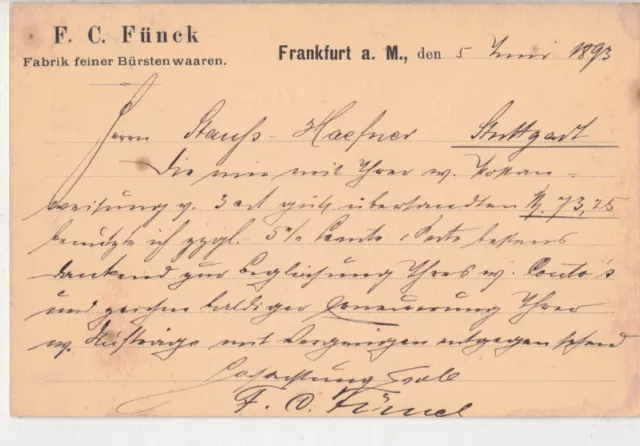 F. C. Fünck
Fabrik feiner Bürstenwaaren.
Frankfurt a. M., den 5 Juni 1893
Herrn Stauss-Haefner Stuttgart
Die mir mit Ihrer w. Postan-
weisung v. 3 ct gütg übersandten M. 73,25
benutzte ich zzgl. 5% Sconto bestens
dankend zur Begleichung Ihres w. Conto's
und zeichne baldiger Erneuerung Ihrer
w. Aufträge mit Vergnügen entgegen sehend
Hochachtungsvoll
F. C. Fünck